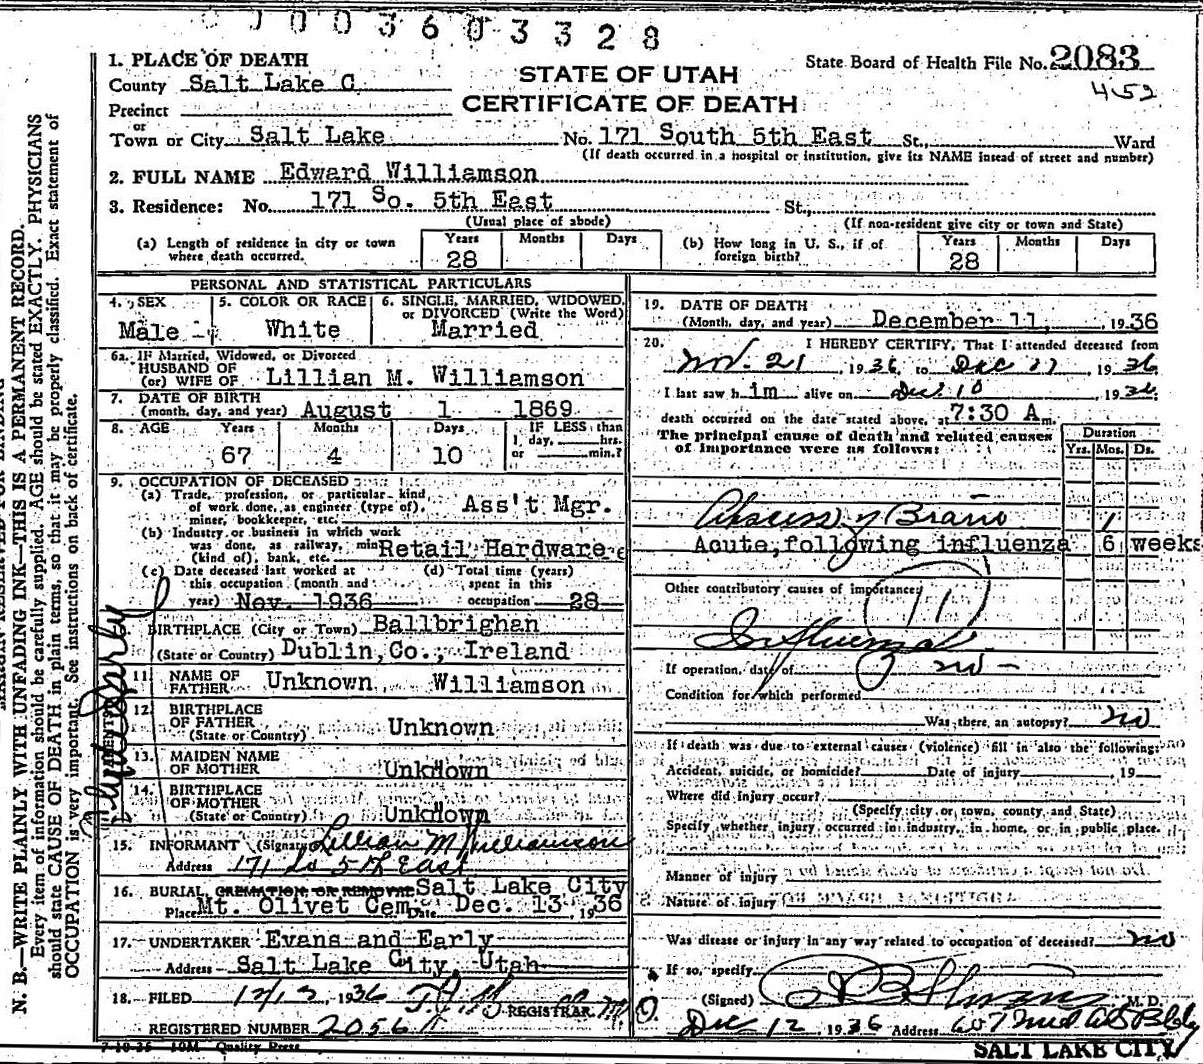 0003603328
1. PLACE OF DEATH
County Salt Lake C
STATE OF UTAH
State Board of Health File No. 2083
452
Precinct
CERTIFICATE OF DEATH
or
Town or City Salt Lake No. 171 South 5th East St., Ward
(If death occurred in a hospital or institution, give its NAME instead of street and number)
2. FULL NAME Edward Williamson
3. Residence: No. 171 So. 5th East St.,
(Usual place of abode) (If non-resident give city or town and State)
(a) Length of residence in city or town where death occurred. Years 28 Months Days
(b) How long in U. S., if of foreign birth? Years 28 Months Days
PERSONAL AND STATISTICAL PARTICULARS
4. SEX Male
5. COLOR OR RACE White
6. SINGLE, MARRIED, WIDOWED, or DIVORCED (Write the Word) Married
6a. IF Married, Widowed, or Divorced
HUSBAND OF
(or) WIFE OF Lillian M. Williamson
7. DATE OF BIRTH
(month, day, and year) August 1 1869
8. AGE Years 67 Months 4 Days 10 IF LESS than 1 day, hrs. or min.?
9. OCCUPATION OF DECEASED
(a) Trade, profession, or particular kind
of work done, as engineer (type of),
miner, bookkeeper, etc. Ass't Mgr.
(b) Industry or business in which work
was done, as railway, mine
(kind of), bank, etc. Retail Hardware
(c) Date deceased last worked at
this occupation (month and
year) Nov. 1936
(d) Total time (years)
spent in this
occupation 28
BIRTHPLACE (City or Town) Ballbrighan
(State or Country) Dublin, Co., Ireland
11. NAME OF FATHER Unknown Williamson
12. BIRTHPLACE
OF FATHER
(State or Country) Unknown
13. MAIDEN NAME
OF MOTHER Unknown
14. BIRTHPLACE
OF MOTHER
(State or Country) Unknown
15. INFORMANT (Signature) Lillian M Williamson
Address 171 So 5th East
16. BURIAL, CREMATION OR REMOVAL Salt Lake City
Place Mt. Olivet Cem. Date Dec. 13, 1936
17. UNDERTAKER Evans and Early
Address Salt Lake City, Utah
18. FILED 12/12, 1936
REGISTRAR
REGISTERED NUMBER 2056
7-10-35 10M Quality Press
19. DATE OF DEATH
(Month, day, and year) December 11, 1936
20. I HEREBY CERTIFY, That I attended deceased from
Nov. 21, 1936, to Dec 11, 1936
I last saw him alive on Dec 10 1936
death occurred on the date stated above, at 7:30 A m.
The principal cause of death and related causes
of importance were as follows:
Duration
Yrs. Mos. Ds.
Abscess of Brain 1
Acute, following influenza 6 weeks
Other contributory causes of importance:
11
Influenza
If operation, date of no
Condition for which performed
Was there an autopsy? no
If death was due to external causes (violence) fill in also the following:
Accident, suicide, or homicide? Date of injury , 19
Where did injury occur?
(Specify city or town, county and State)
Specify whether injury occurred in industry, in home, or in public place.
Manner of injury
Nature of injury
Was disease or injury in any way related to occupation of deceased? no
If so, specify
(Signed) M. D.
Dec 12, 1936 Address 607 Med Arts Bldg
SALT LAKE CITY
N. B.—WRITE PLAINLY WITH UNFADING INK—THIS IS A PERMANENT RECORD.
Every item of information should be carefully supplied. AGE should be stated EXACTLY. PHYSICIANS
should state CAUSE OF DEATH in plain terms, so that it may be properly classified. Exact statement of
OCCUPATION is very important. See instructions on back of certificate.